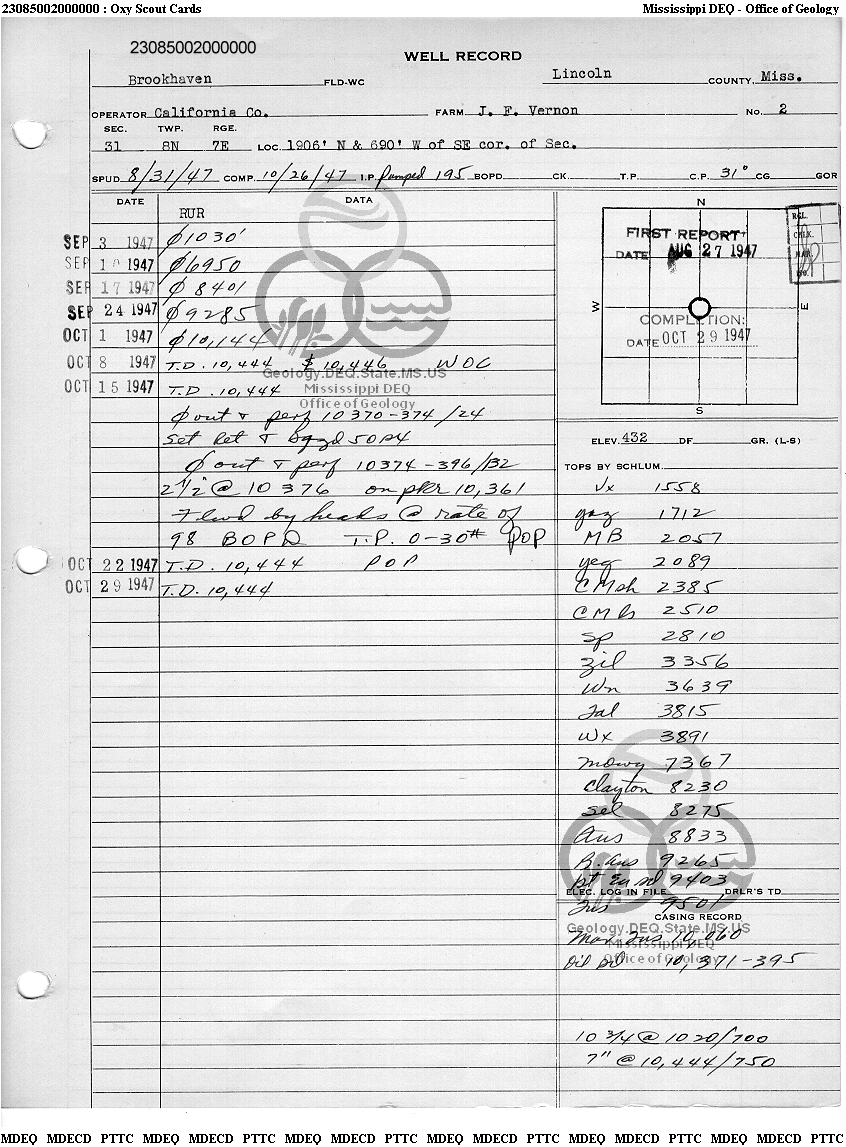 23085002000000 : Oxy Scout Cards Mississippi DEQ - Office of Geology
23085002000000
WELL RECORD
Brookhaven FLD-WC Lincoln COUNTY, Miss.
OPERATOR California Co. FARM J. F. Vernon No. 2
SEC. TWP. RGE.
31 8N 7E LOC. 1906' N & 690' W of SE cor. of Sec.
SPUD 8/31/47 COMP. 10/26/47 I.P. Pumped 195 BOPD CK. T.P. C.P. 31° CG GOR
DATE DATA
RUR
SEP 3 1947 ϕ1030'
SEP 10 1947 ϕ6950
SEP 17 1947 ϕ 8401
SEP 24 1947 ϕ9285
OCT 1 1947 ϕ10,144
OCT 8 1947 T.D. 10,444 $ 10,446 WOC
OCT 15 1947 T.D. 10,444
ϕ out & perf 10 370-374/24
Set ret & sqzd 50
ϕ out & perf 10374-396/132
2 1/2" @ 10 376 on pkr 10,361
Flwd by heads @ rate of
98 BOPD T.P. 0-30# POP
OCT 22 1947 T.D. 10,444 POP
OCT 29 1947 T.D. 10,444
N
W
E
S
FIRST REPORT
DATE AUG 27 1947
COMPLETION:
DATE OCT 29 1947
RGL.
CHLK.
MAP
ELEV. 432 DF GR. (L-S)
TOPS BY SCHLUM.
Vx 1558
yaz 1712
MB 2057
yeg 2089
CMsh 2385
CMls 2510
Sp 2810
Zil 3356
Wn 3639
Tal 3815
Wx 3891
Mowy 7367
Clayton 8230
Sel 8275
Aus 8833
B. Aus 9265
pt Eu sd 9403
ELEC. LOG IN FILE DRLR'S TD
Tus 9501
CASING RECORD
Mar Tus 10,060
Oil sd 10,371-395
10 3/4 @ 1020/700
7" @ 10,444/750
Geology.DEQ.State.MS.US
Mississippi DEQ
Office of Geology
Geology.DEQ.State.MS.US
Mississippi DEQ
Office of Geology
MDEQ MDECD PTTC MDEQ MDECD PTTC MDEQ MDECD PTTC MDEQ MDECD PTTC MDEQ MDECD PTTC MDEQ MDECD PTTC